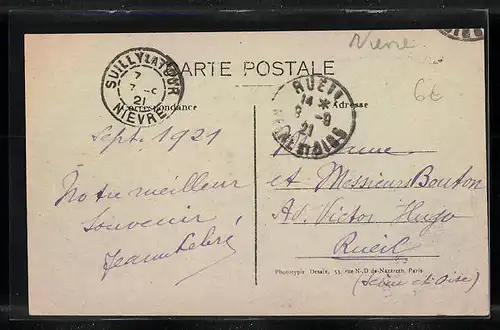 Nièvre
6€
CARTE POSTALE
SUILLY LA TOUR
7
7 - 9
21
NIEVRE
RUEIL
14 *
8 - 9
21
SEINE ET OISE
Correspondance
Adresse
Sept. 1921
Notre meilleur
souvenir
Madame
et Messieurs Bouton
Av. Victor Hugo
Rueil
(Seine et Oise)
Phototypie Desaix, 53, rue N.-D. de Nazareth, Paris